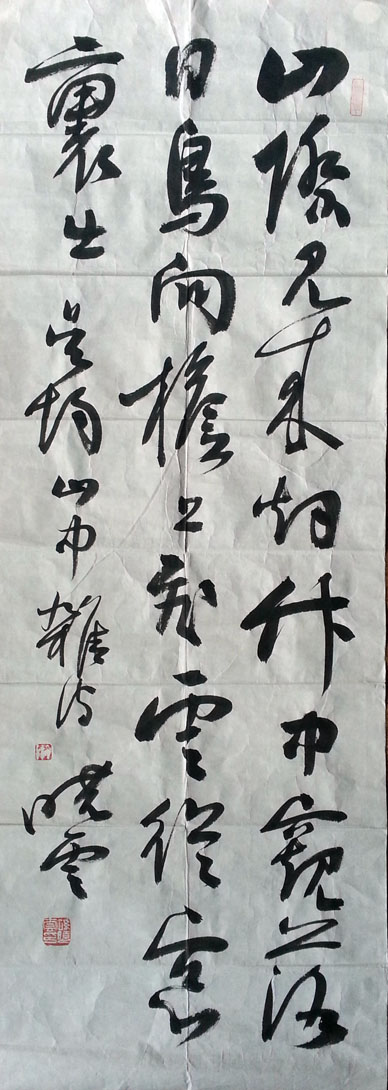 山際見來烟竹中窺落
日鳥向檐上飛雲從窗
裏出 吴均山中雜詩 曉雲